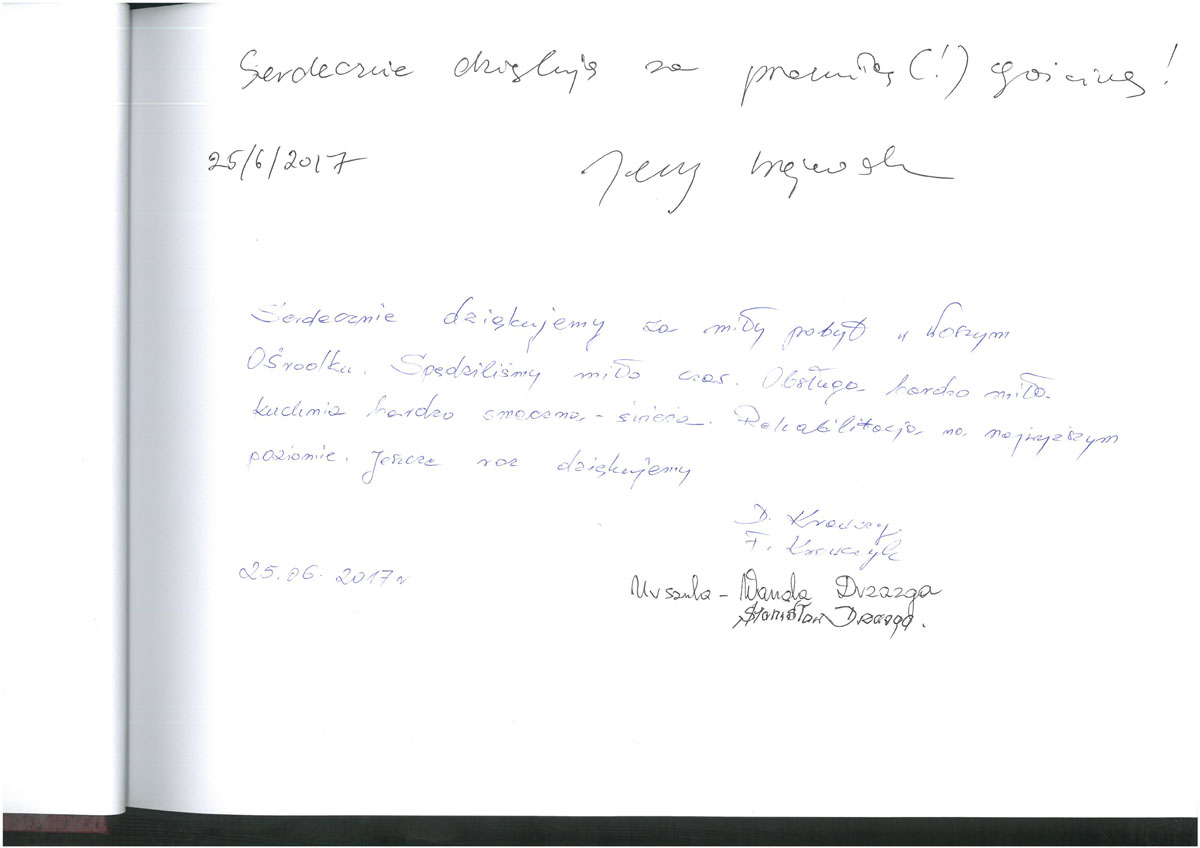 Serdecznie dziękuję za przemiłą (!) gościnę!
25/6/2017 Jerzy
Serdecznie dziękujemy za miły pobyt w Waszym
Ośrodku. Spędziliśmy miło czas. Obsługa bardzo miła.
kuchnia bardzo smaczna - świeża. Rehabilitacja na najwyższym
poziomie. Jeszcze raz dziękujemy
D. Krawczyk
F. Krawczyk
25.06.2017 r
Urszula - Wanda Drzazga
Stanisław Drzazga.